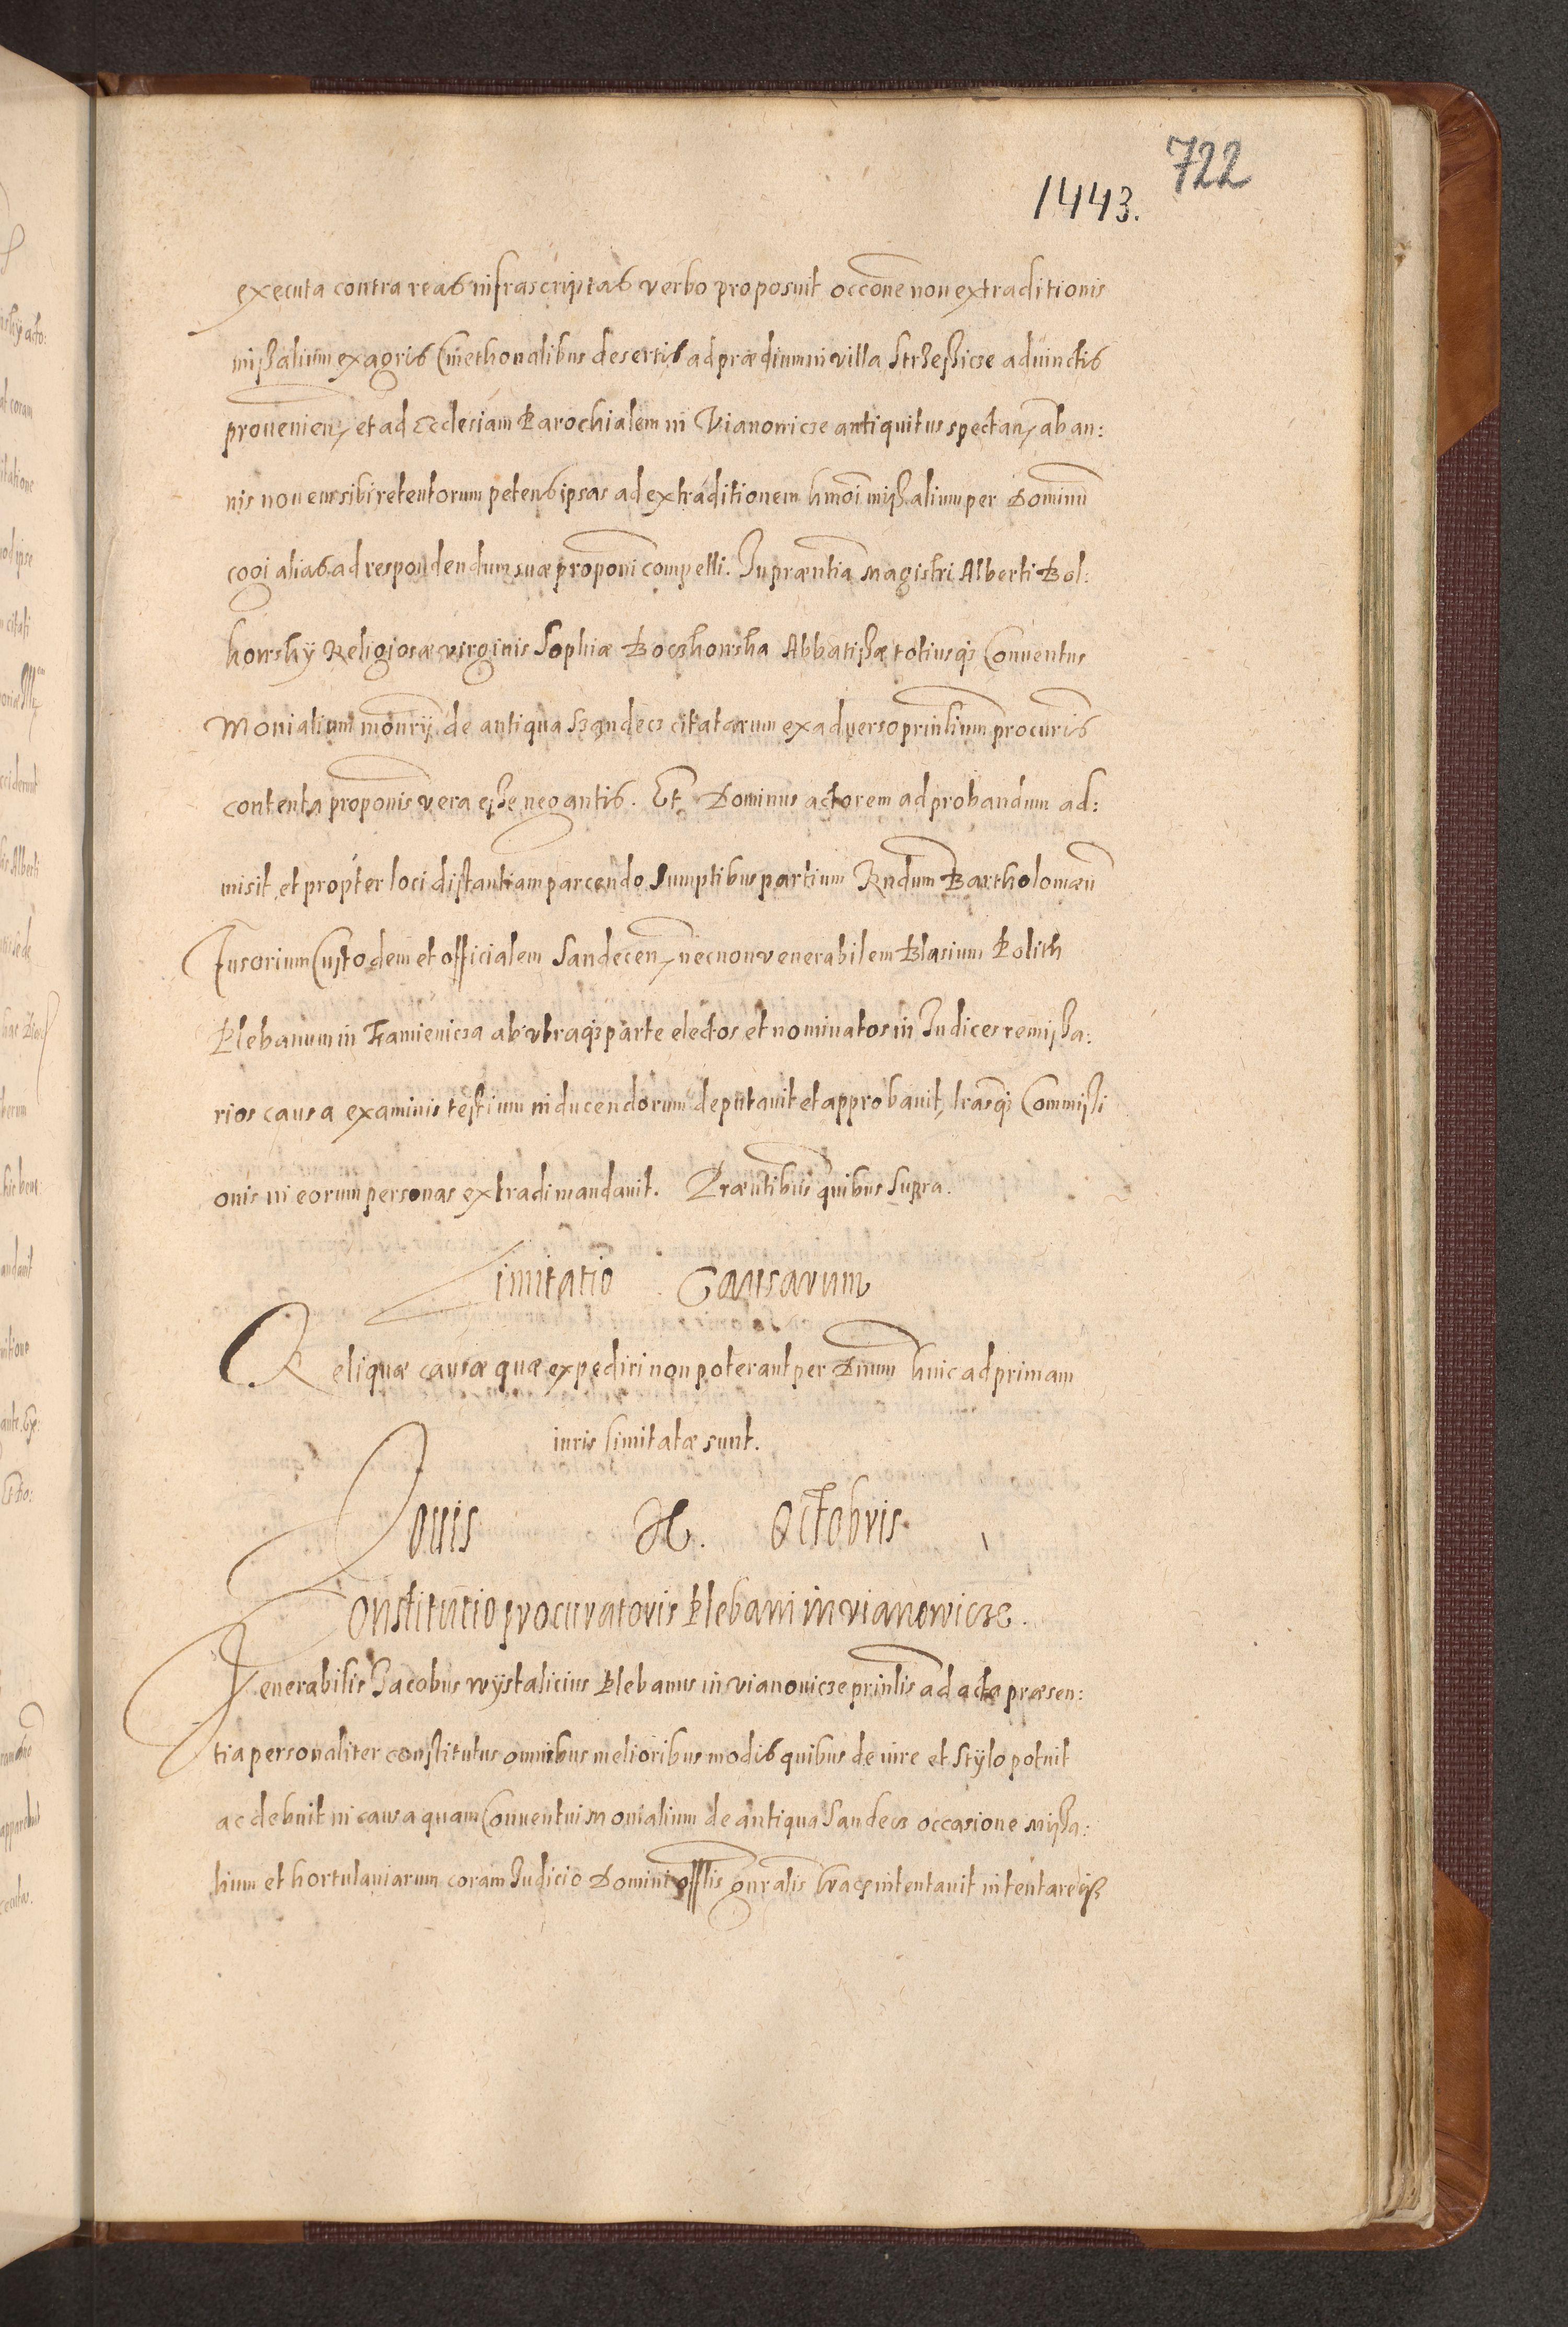 722
1443.
executa contra reas infrascriptas verbo proposuit occõne non extraditionis
mißalium ex agris Cmethonalibus desertis ad prædium in villa Strzeßicze aduinctis
prouenien, et ad Ecclesiam Parochialem in Vianowicze antiquitus spectan, ab an:
nis nouem sibi retentorum petens ipsas ad extraditionem hmõi mißalium per Dominũ
cogi alias ad respondendum suæ proponi compelli. In præntia Magistri Alberti Bol:
kowskÿ Religiosæ virginis Sophiæ Boczkowska Abbatißæ totiusq3 Conuentus
Monialium monrÿ de antiqua Szandecz citatarum ex aduerso prinlium procuris
contenta proponis vera eße negantis. Et Dominus actorem ad probandum ad:
misit, et propter loci distantiam parcendo Sumptibus partium Rndum Bartholomæũ
Fusorium Custodem et officialem Sandecen, necnon venerabilem Blasium Polith
Plebanum in Kamienicza ab vtraq3 parte electos et nominatos in Iudices remißa:
rios causa examinis testium inducendorum deputauit et approbauit, lrasq3 Commißi
onis in eorum personas extradi mandauit. Præntibus quibus Supra.
Limitatio Causarum
Reliquæ causæ quæ expediri non poterant per Dnum huic ad primam
iuris limitatæ sunt.
Iouis X. Octobris
Constitutio procuratoris Plebani in vianowicze.
Venerabilis Iacobus wÿstalicius Plebanus in vianouicze prinlis ad acta præsen:
tia personaliter constitutus omnibus melioribus modis quibus de iure et Stÿlo potuit
ac debuit in causa quam Conuentui Monialium de antiqua Sandecz occasione Mißa:
lium et hortulaniarum coram Iudicio Domini offlis gnralis Crac intentauit intentareiß